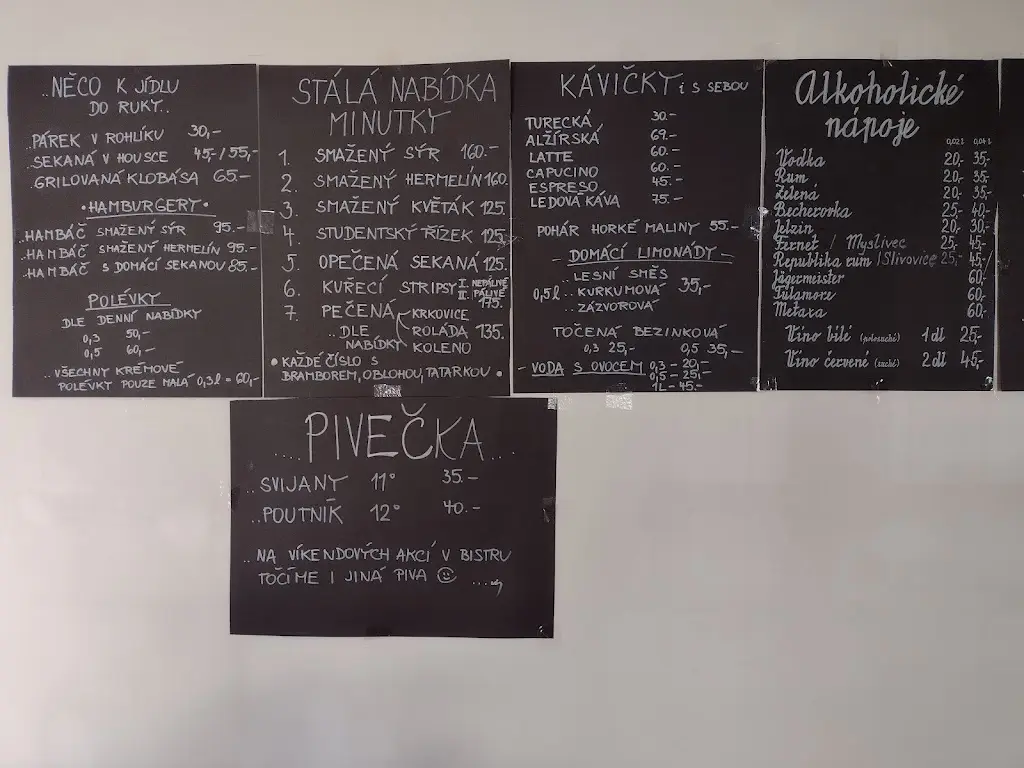 ..NĚCO K JÍDLU
DO RUKY..
..PÁREK V ROHLÍKU 30,-
..SEKANÁ V HOUSCE 45,-/55,-
..GRILOVANÁ KLOBÁSA 65.-
•HAMBURGERY•
..HAMBÁČ SMAŽENÝ SÝR 95.-
..HAMBÁČ SMAŽENÝ HERMELÍN 95.-
..HAMBÁČ S DOMÁCÍ SEKANOU 85.-
POLÉVKY
DLE DENNÍ NABÍDKY
0,3 50,-
0,5 60,-
..VŠECHNY KRÉMOVÉ
POLÉVKY POUZE MALÁ 0,3l = 60,-
STÁLÁ NABÍDKA
MINUTKY
1. SMAŽENÝ SÝR 160.-
2. SMAŽENÝ HERMELÍN 160.
3. SMAŽENÝ KVĚTÁK 125.
4. STUDENTSKÝ ŘÍZEK 125.
5. OPEČENÁ SEKANÁ 125.
6. KUŘECÍ STRIPSY I. NEPÁLIVÉ
II. PÁLIVÉ 175.-
7. PEČENÁ KRKOVICE
..DLE ROLÁDA 135.
NABÍDKY KOLENO
• KAŽDÉ ČÍSLO S
BRAMBOREM, OBLOHOU, TATARKOU •
KÁVIČKY i S SEBOU
TURECKÁ 30.-
ALŽÍRSKÁ 69.-
LATTE 60.-
CAPUCINO 60.-
ESPRESO 45.-
LEDOVÁ KÁVA 75.-
POHÁR HORKÉ MALINY 55.-
- DOMÁCÍ LIMONÁDY -
..LESNÍ SMĚS
0,5l ..KURKUMOVÁ 35,-
..ZÁZVOROVÁ
TOČENÁ BEZINKOVÁ
0,3 25,- 0,5 35,-
- VODA S OVOCEM 0,3 - 20,-
0,5 - 25,-
1L - 45.-
Alkoholické
nápoje
0,02 l 0,04 l
Vodka 20,- 35,-
Rum 20,- 35,-
Zelená 20,- 35,-
Becherovka 25,- 40,-
Jelzin 20,- 30,-
Fernet / Myslivec 25,- 45,-
Republika rum / Slivovice 25,- 45,-
Jägermeister 60,-
Tulamore 60,-
Metaxa 60,-
Víno bílé (polosuché) 1 dl 25,-
Víno červené (suché) 2 dl 45,-
....PIVEČKA....
..SVIJANY 11° 35.-
..POUTNÍK 12° 40.-
..NA VÍKENDOVÝCH AKCÍ V BISTRU
TOČÍME I JINÁ PIVA ☺